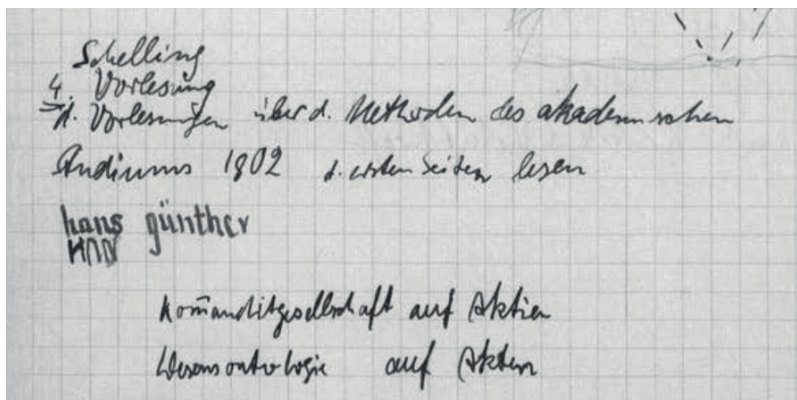 Schelling
4. Vorlesung
d. Vorlesungen über d. Methoden des akademischen
Studiums 1802 d. ersten Seiten lesen
hans günther
Kom̄anditgesellschaft auf Aktien
Wesensontologie auf Akten